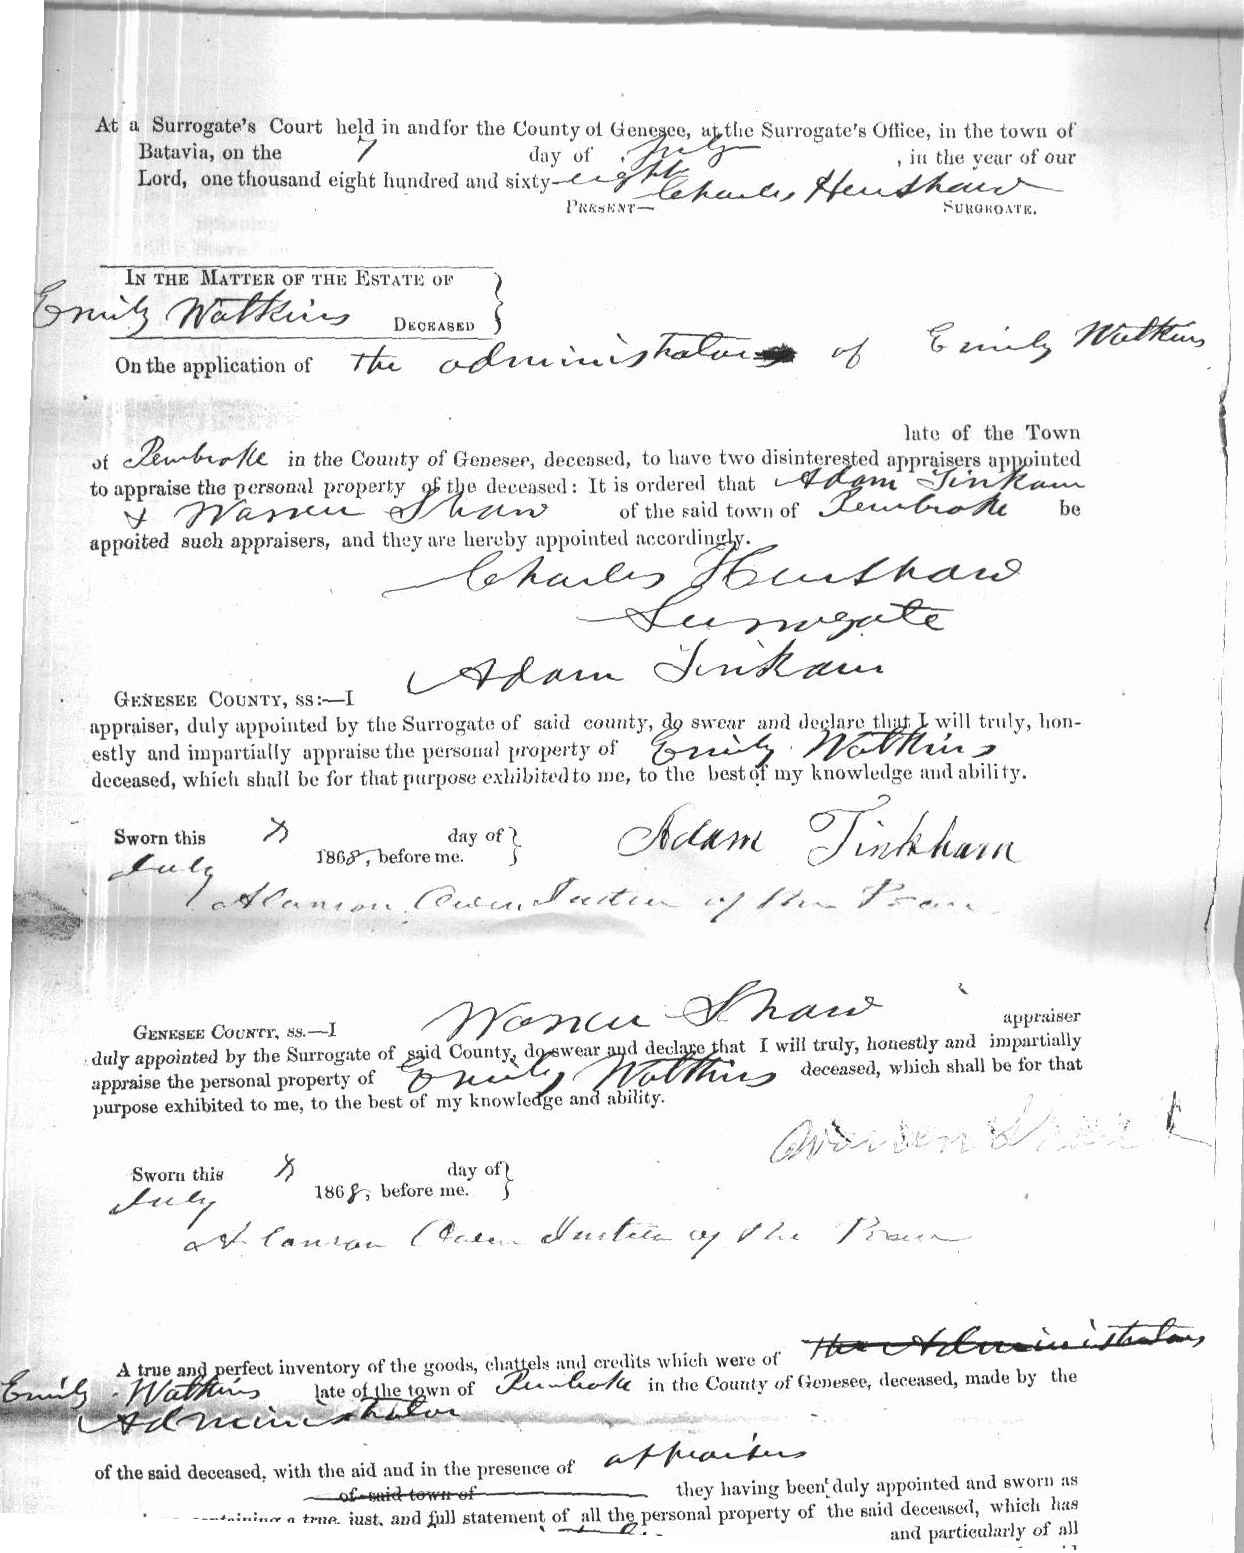 At a Surrogate's Court held in and for the County of Genesee, at the Surrogate's Office, in the town of
Batavia, on the 7 day of July, in the year of our
Lord, one thousand eight hundred and sixty-eight
Charles Henshaw
PRESENT— SURGROATE.
IN THE MATTER OF THE ESTATE OF
Emily Watkins DECEASED
On the application of The administrator of Emily Watkins
late of the Town
of Pembroke in the County of Genesee, deceased, to have two disinterested appraisers appointed
to appraise the personal property of the deceased: It is ordered that Adam Tinkam
& Warren Shaw of the said town of Pembroke be
appoited such appraisers, and they are hereby appointed accordingly.
Charles Henshaw
Surrogate
Adam Tinkam
GENESEE COUNTY, ss:—I
appraiser, duly appointed by the Surrogate of said county, do swear and declare that I will truly, hon-
estly and impartially appraise the personal property of Emily Watkins
deceased, which shall be for that purpose exhibited to me, to the best of my knowledge and ability.
Sworn this day of Adam Tinkham
July 1868, before me.
Alanson Owen Justice of the Peace
Warren Shaw
GENESEE COUNTY, ss.—I appraiser
duly appointed by the Surrogate of said County, do swear and declare that I will truly, honestly and impartially
appraise the personal property of Emily Watkins deceased, which shall be for that
purpose exhibited to me, to the best of my knowledge and ability.
Warren Shaw
Sworn this day of
July 1868, before me.
Alanson Owen Justice of the Peace
the Administrators
A true and perfect inventory of the goods, chattels and credits which were of
Emily Watkins late of the town of Pembroke in the County of Genesee, deceased, made by the
Administrator
of the said deceased, with the aid and in the presence of appraisers
of said town of they having been duly appointed and sworn as
containing a true, just, and full statement of all the personal property of the said deceased, which has
and particularly of all